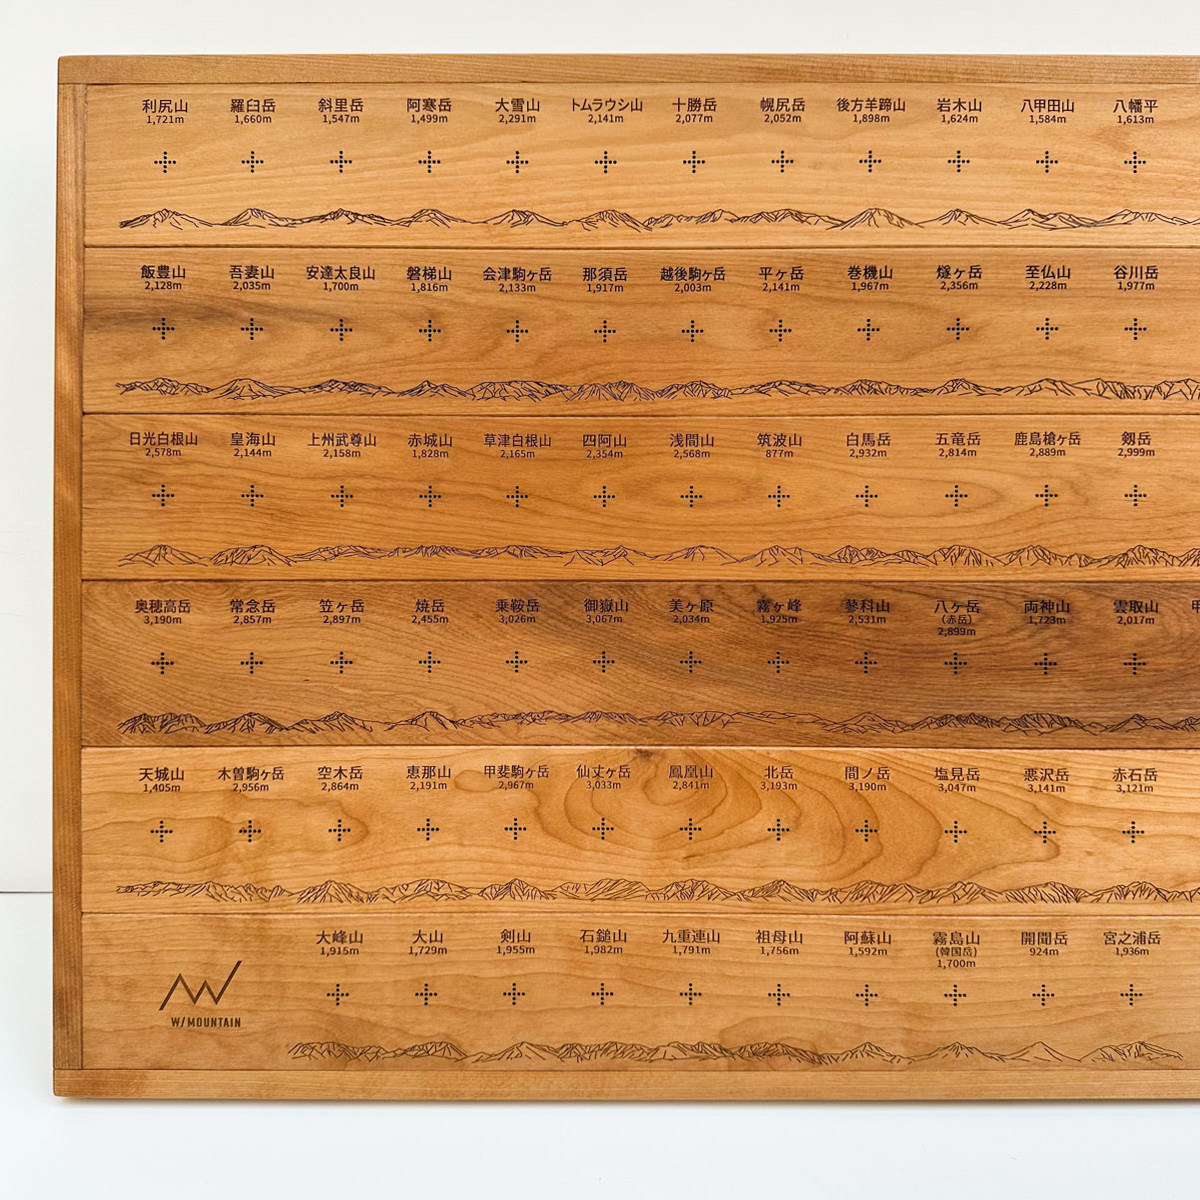 利尻山 羅臼岳 斜里岳 阿寒岳 大雪山 トムラウシ山 十勝岳 幌尻岳 後方羊蹄山 岩木山 八甲田山 八幡平
1,721m 1,660m 1,547m 1,499m 2,291m 2,141m 2,077m 2,052m 1,898m 1,624m 1,584m 1,613m
飯豊山 吾妻山 安達太良山 磐梯山 会津駒ヶ岳 那須岳 越後駒ヶ岳 平ヶ岳 巻機山 燧ヶ岳 至仏山 谷川岳
2,128m 2,035m 1,700m 1,816m 2,133m 1,917m 2,003m 2,141m 1,967m 2,356m 2,228m 1,977m
日光白根山 皇海山 上州武尊山 赤城山 草津白根山 四阿山 浅間山 筑波山 白馬岳 五竜岳 鹿島槍ヶ岳 剱岳
2,578m 2,144m 2,158m 1,828m 2,165m 2,354m 2,568m 877m 2,932m 2,814m 2,889m 2,999m
奥穂高岳 常念岳 笠ヶ岳 焼岳 乗鞍岳 御嶽山 美ヶ原 霧ヶ峰 蓼科山 八ヶ岳 両神山 雲取山 甲
3,190m 2,857m 2,897m 2,455m 3,026m 3,067m 2,034m 1,925m 2,531m (赤岳) 1,723m 2,017m
2,899m
天城山 木曽駒ヶ岳 空木岳 恵那山 甲斐駒ヶ岳 仙丈ヶ岳 鳳凰山 北岳 間ノ岳 塩見岳 悪沢岳 赤石岳
1,405m 2,956m 2,864m 2,191m 2,967m 3,033m 2,841m 3,193m 3,190m 3,047m 3,141m 3,121m
大峰山 大山 剣山 石鎚山 九重連山 祖母山 阿蘇山 霧島山 開聞岳 宮之浦岳
1,915m 1,729m 1,955m 1,982m 1,791m 1,756m 1,592m (韓国岳) 924m 1,936m
1,700m
W/MOUNTAIN